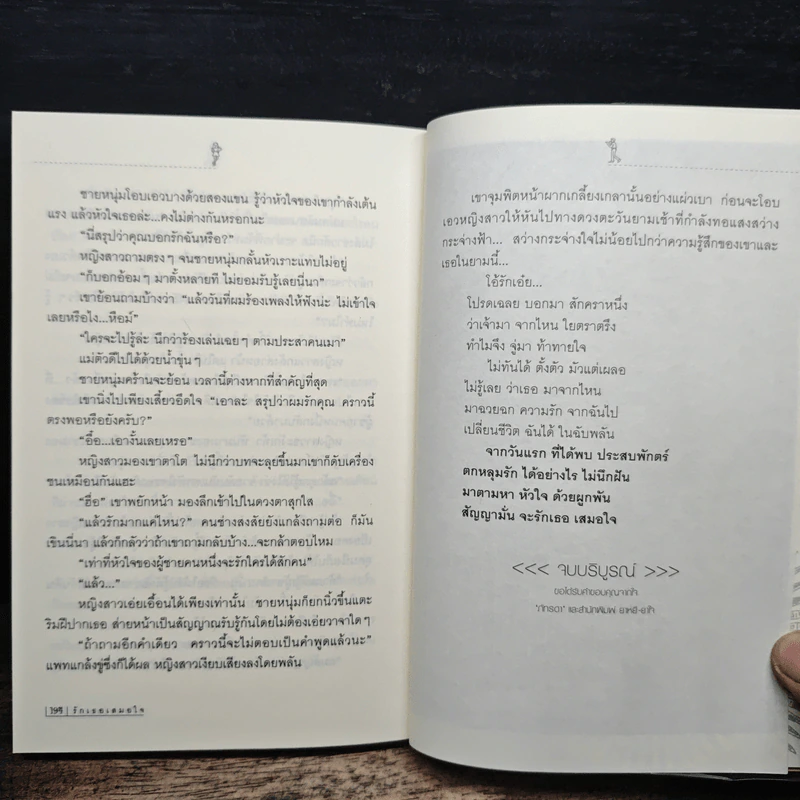 ชายหนุ่มโอบเอวบางด้วยสองแขน รู้ว่าหัวใจของเขากำลังเต้น
แรง แล้วหัวใจเธอล่ะ...คงไม่ต่างกันหรอกนะ
“นี่สรุปว่าคุณบอกรักฉันหรือ?”
หญิงสาวถามตรงๆ จนชายหนุ่มกลั้นหัวเราะแทบไม่อยู่
“ก็บอกอ้อมๆ มาตั้งหลายที ไม่ยอมรับรู้เลยนี่นา”
เขาย้อนถามบ้างว่า “แล้ววันที่ผมร้องเพลงให้ฟังน่ะ ไม่เข้าใจ
เลยหรือไง...หือม์”
“ใครจะไปรู้ล่ะ นึกว่าร้องเล่นเฉยๆ ตามประสาคนเมา”
แม่ตัวดีไปได้ด้วยน้ำขุ่นๆ
ชายหนุ่มคร้านจะย้อน เวลานี้ต่างหากที่สำคัญที่สุด
เขานิ่งไปเพียงเสี้ยวอึดใจ “เอาละ สรุปว่าผมรักคุณ คราวนี้
ตรงพอหรือยังครับ?”
“อื๊อ...เอางั้นเลยเหรอ”
หญิงสาวมองเขาตาโต ไม่นึกว่าบทจะลุยขึ้นมาเขาก็ดับเครื่อง
ชนเหมือนกันแฮะ
“ฮื่อ” เขาพยักหน้า มองลึกเข้าไปในดวงตาสุกใส
“แล้วรักมากแค่ไหน?” คนช่างสงสัยยังแกล้งถามต่อ ก็มัน
เขินนี่นา แล้วก็กลัวว่าถ้าเขาถามกลับบ้าง...จะกล้าตอบไหม
“เท่าที่หัวใจของผู้ชายคนหนึ่งจะรักใครได้สักคน”
“แล้ว...”
หญิงสาวเอ่ยเอื้อนได้เพียงเท่านั้น ชายหนุ่มก็ยกนิ้วขึ้นแตะ
ริมฝีปากเธอ ส่ายหน้าเป็นสัญญาณรับรู้กันโดยไม่ต้องเอ่ยวาจาใดๆ
“ถ้าถามอีกคำเดียว คราวนี้จะไม่ตอบเป็นคำพูดแล้วนะ”
แพทแกล้งขู่ซึ่งก็ได้ผล หญิงสาวเงียบเสียงลงโดยพลัน
| รักเธอเสมอใจ
เขาจุมพิตหน้าผากเกลี้ยงเกลานั้นอย่างแผ่วเบา ก่อนจะโอบ
เอวหญิงสาวให้หันไปทางดวงตะวันยามเช้าที่กำลังทอแสงสว่าง
กระจ่างฟ้า... สว่างกระจ่างใจไม่น้อยไปกว่าความรู้สึกของเขาและ
เธอในยามนี้...
โอ้รักเอ๋ย...
โปรดเฉลย บอกมา สักคราหนึ่ง
ว่าเจ้ามา จากไหน ใยตราตรึง
ทำไมจึง จู่มา ท้าทายใจ
ไม่ทันได้ ตั้งตัว มัวแต่เผลอ
ไม่รู้เลย ว่าเธอ มาจากไหน
มาฉวยฉก ความรัก จากฉันไป
เปลี่ยนชีวิต ฉันได้ ในฉับพลัน
จากวันแรก ที่ได้พบ ประสบพักตร์
ตกหลุมรัก ได้อย่างไร ไม่นึกฝัน
มาตามหา หัวใจ ด้วยผูกพัน
สัญญามั่น จะรักเธอ เสมอใจ
<<< จบบริบูรณ์ >>>
ขอได้รับคำขอบคุณจากใจ
“ภัทรดา” และสำนักพิมพ์